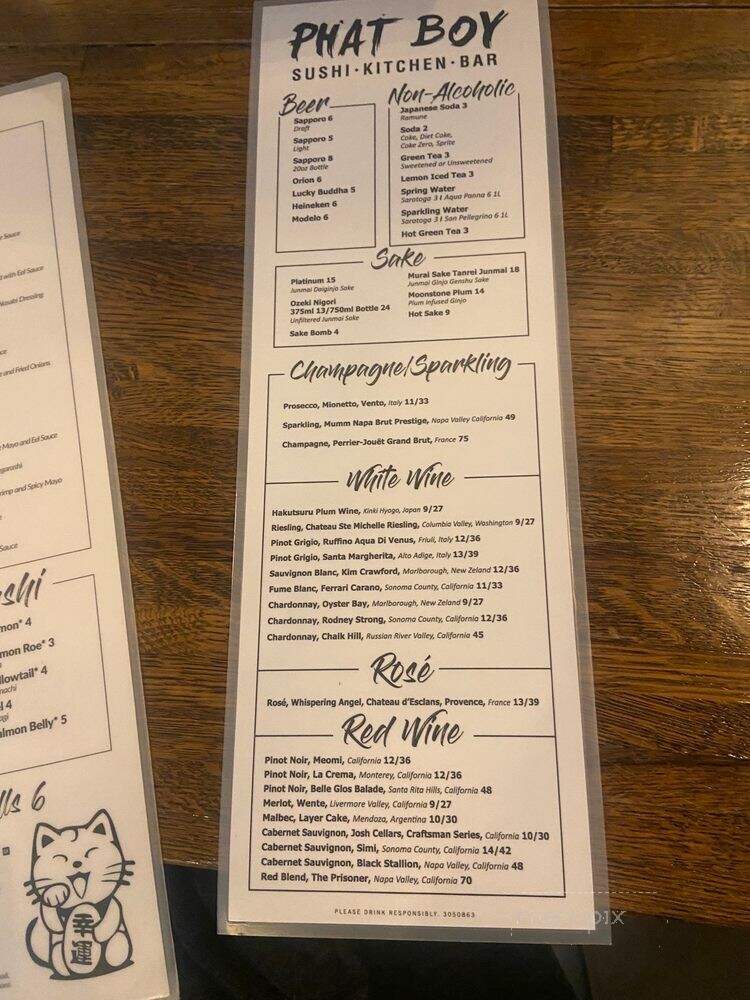 PHAT BOY
SUSHI·KITCHEN·BAR
Beer
Sapporo 6
Draft
Sapporo 5
Light
Sapporo 8
20oz Bottle
Orion 6
Lucky Buddha 5
Heineken 6
Modelo 6
Non-Alcoholic
Japanese Soda 3
Ramune
Soda 2
Coke, Diet Coke,
Coke Zero, Sprite
Green Tea 3
Sweetened or Unsweetened
Lemon Iced Tea 3
Spring Water
Saratoga 3 I Aqua Panna 6 1L
Sparkling Water
Saratoga 3 I San Pellegrino 6 1L
Hot Green Tea 3
Sake
Platinum 15
Junmai Daiginjo Sake
Ozeki Nigori
375ml 13/750ml Bottle 24
Unfiltered Junmai Sake
Sake Bomb 4
Murai Sake Tanrei Junmai 18
Junmai Ginjo Genshu Sake
Moonstone Plum 14
Plum Infused Ginjo
Hot Sake 9
Champagne/Sparkling
Prosecco, Mionetto, Vento, Italy 11/33
Sparkling, Mumm Napa Brut Prestige, Napa Valley California 49
Champagne, Perrier-Jouët Grand Brut, France 75
White Wine
Hakutsuru Plum Wine, Kinki Hyogo, Japan 9/27
Riesling, Chateau Ste Michelle Riesling, Columbia Valley, Washington 9/27
Pinot Grigio, Ruffino Aqua Di Venus, Friuli, Italy 12/36
Pinot Grigio, Santa Margherita, Alto Adige, Italy 13/39
Sauvignon Blanc, Kim Crawford, Marlborough, New Zeland 12/36
Fume Blanc, Ferrari Carano, Sonoma County, California 11/33
Chardonnay, Oyster Bay, Marlborough, New Zeland 9/27
Chardonnay, Rodney Strong, Sonoma County, California 12/36
Chardonnay, Chalk Hill, Russian River Valley, California 45
Rosé
Rosé, Whispering Angel, Chateau d'Esclans, Provence, France 13/39
Red Wine
Pinot Noir, Meomi, California 12/36
Pinot Noir, La Crema, Monterey, California 12/36
Pinot Noir, Belle Glos Balade, Santa Rita Hills, California 48
Merlot, Wente, Livermore Valley, California 9/27
Malbec, Layer Cake, Mendoza, Argentina 10/30
Cabernet Sauvignon, Josh Cellars, Craftsman Series, California 10/30
Cabernet Sauvignon, Simi, Sonoma County, California 14/42
Cabernet Sauvignon, Black Stallion, Napa Valley, California 48
Red Blend, The Prisoner, Napa Valley, California 70
PLEASE DRINK RESPONSIBLY. 3050863
Sauce
with Eel Sauce
Wasabi Dressing
and Fried Onions
Mayo and Eel Sauce
and Spicy Mayo
Sauce
Roe* 3
4
Belly* 5
6
幸
運